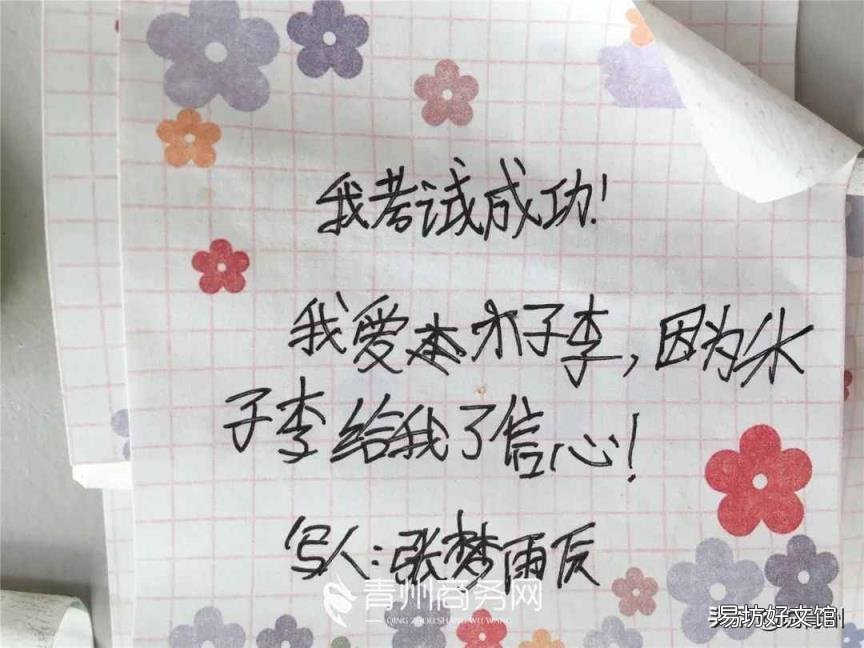 我考试成功！
我爱本木子李，因为木
子李给我了信心！
写人：张梦雨反
青州商务网
QING ZHOU SHANG WU WANG
易坊好文馆